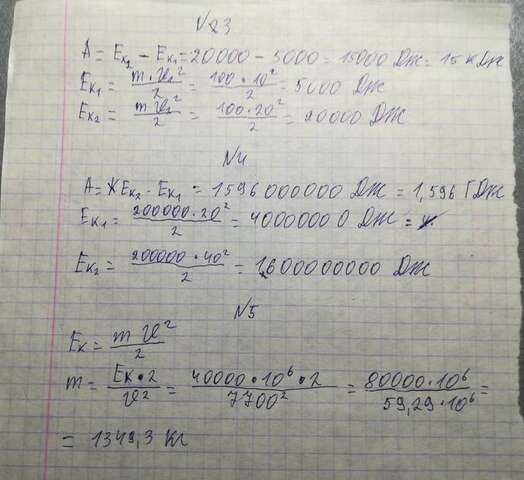 №23
A = Eк₂ - Eк₁ = 20000 - 5000 = 15000 Дж = 15 кДж
Eк₁ = m·v₁²/2 = 100·10²/2 = 5000 Дж
Eк₂ = m v₂²/2 = 100·20²/2 = 20000 Дж
№4
A = Eк₂ - Eк₁ = 1596000000 Дж = 1,596 ГДж
Eк₁ = 200000·20²/2 = 40000000 Дж =
Eк₂ = 200000·40²/2 = 1600000000 Дж
№5
Eк = m v²/2
m = Eк·2/v² = 40000·10⁶·2/7700² = 80000·10⁶/59,29·10⁶ =
= 1349,3 кг